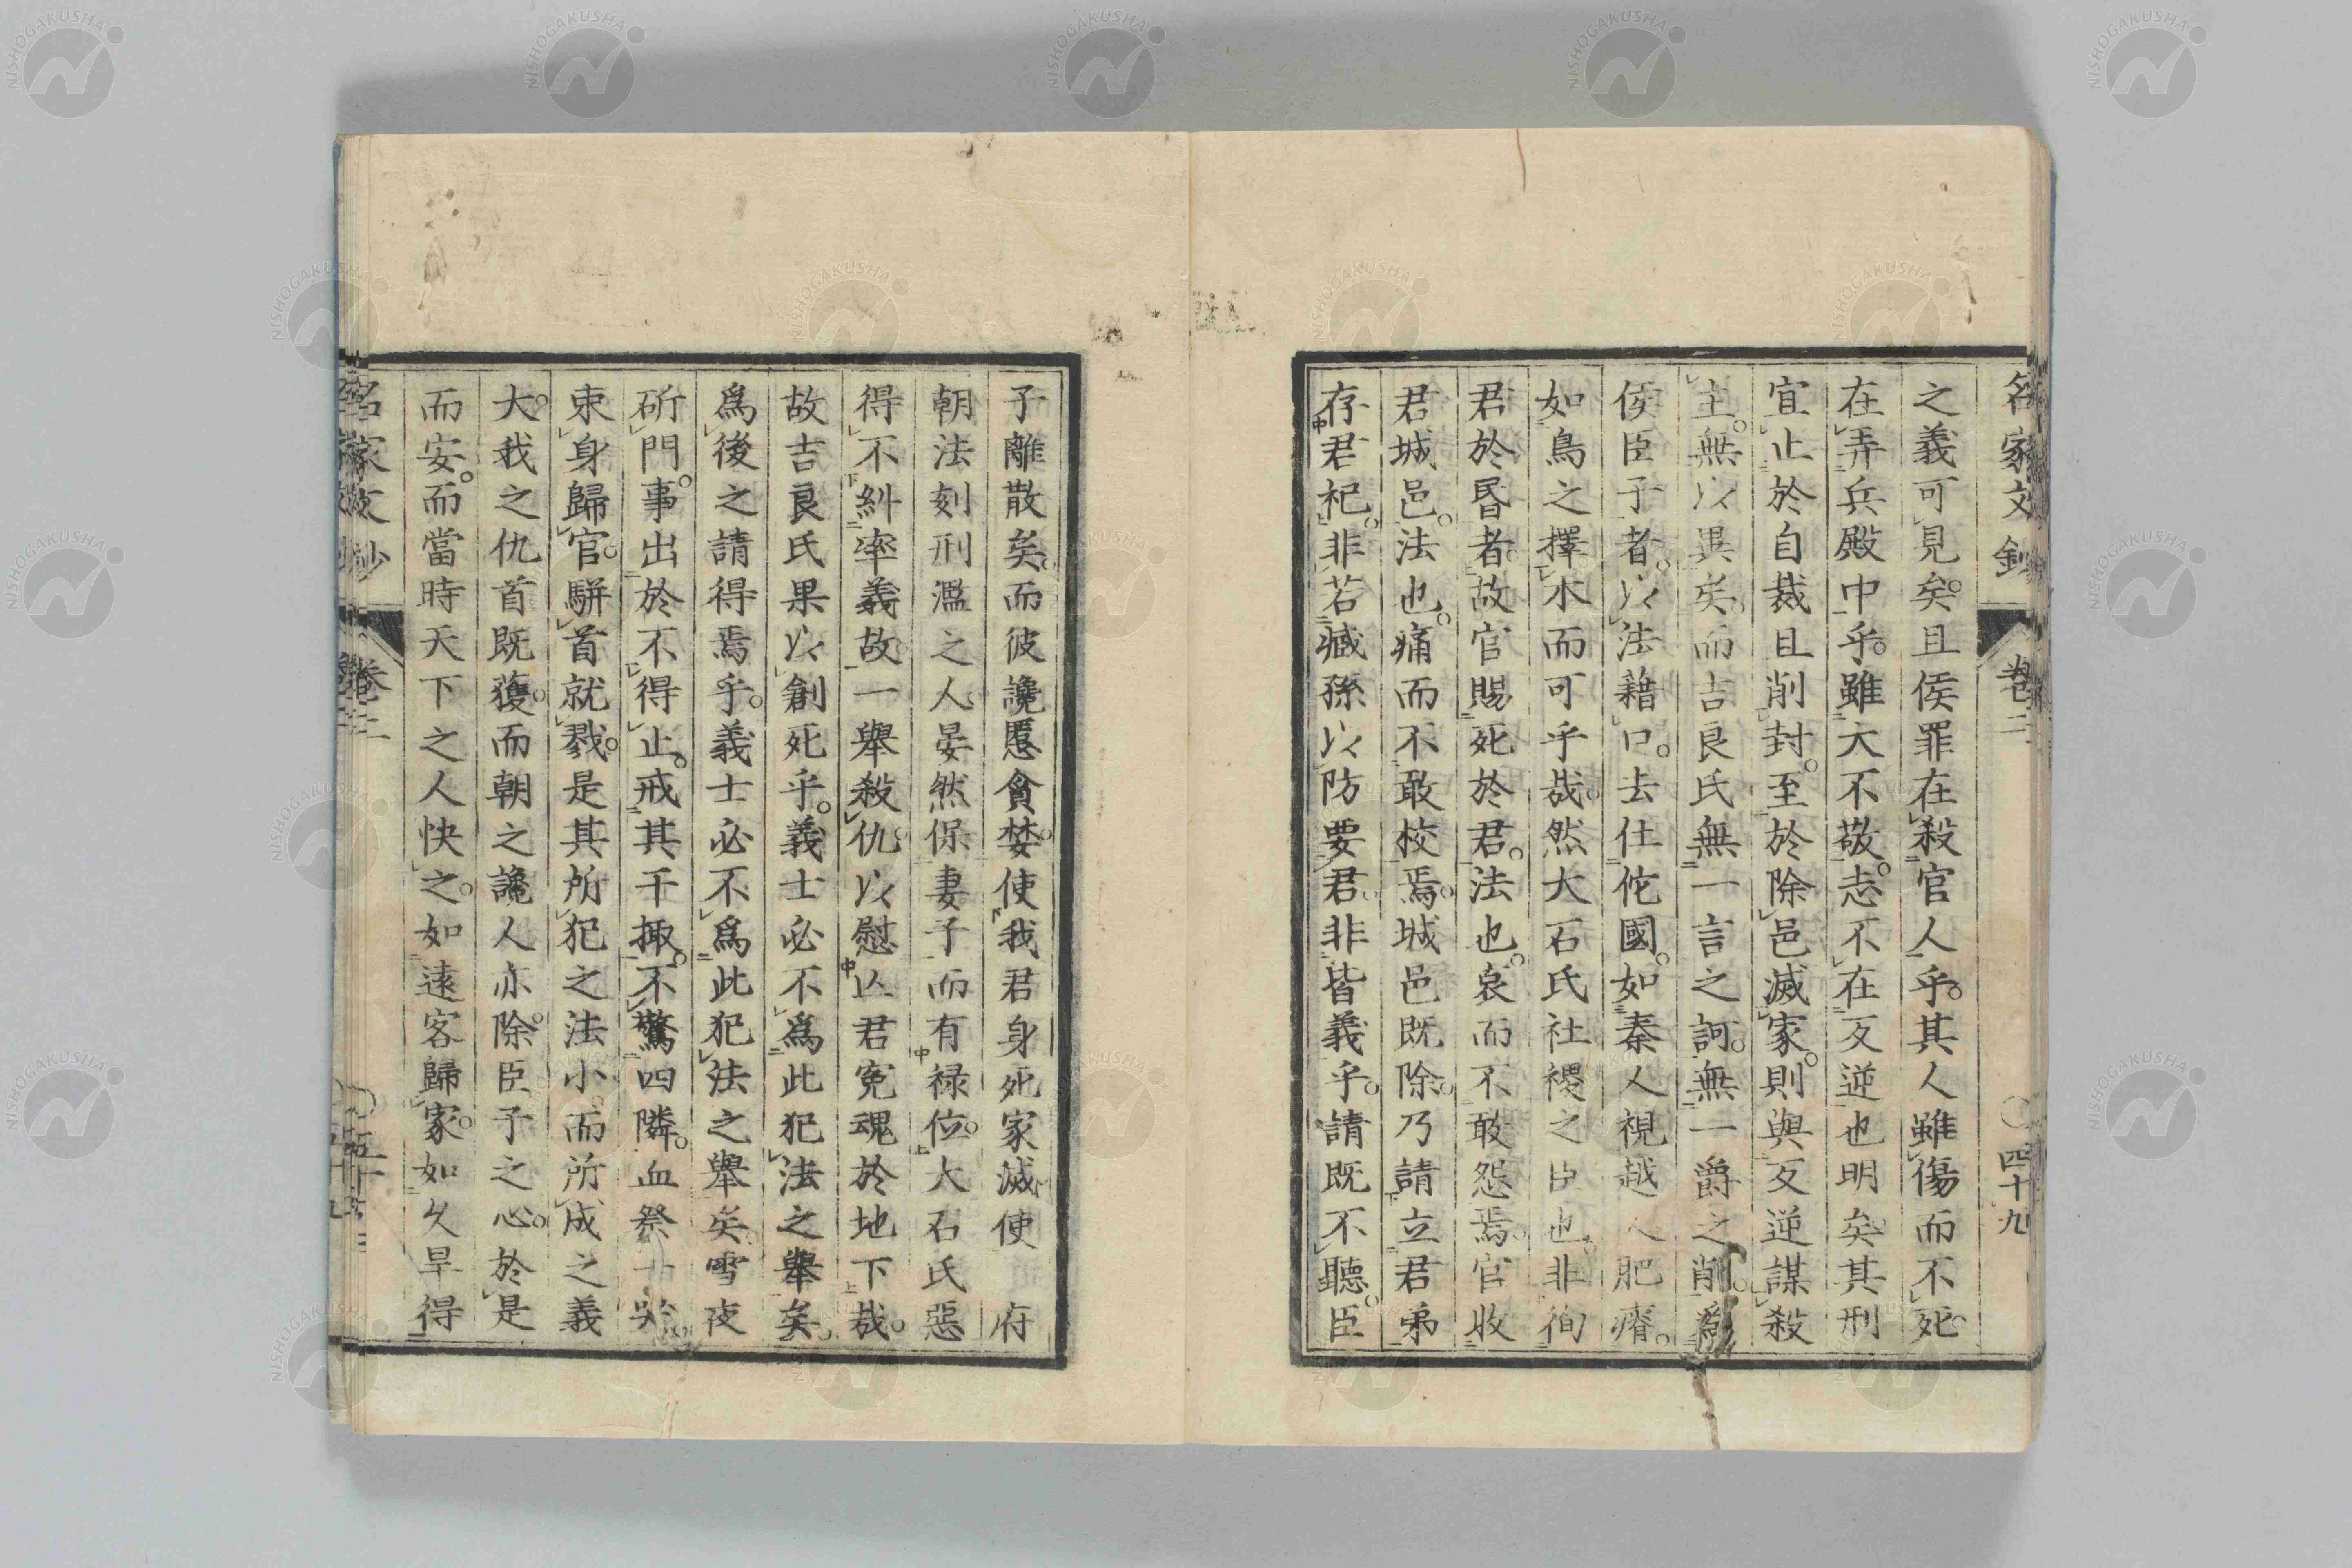 名家文鈔 卷二 〇四十九
之義可見矣。且侯罪在殺官人乎。其人雖傷而不死。
在弄兵殿中乎。雖大不敬。志不在叛逆也明矣其刑
宜止於自裁且削封。至於除邑滅家。則與叛逆謀殺
主。無以異矣。而吉良氏無一言之訶。無一爵之削。爲
侯臣子者。以法藉口。去仕佗國。如秦人視越人肥瘠。
如鳥之擇木而可乎哉。然大石氏社稷之臣也。非徇
君於昬者。故官賜死於君。法也。哀而不敢怨焉。官收
君城邑。法也。痛而不敢校焉。城邑既除。乃請立君弟
存君祀。非若臧孫以防要君。非皆義乎。請既不聽。臣
子離散矣。而彼讒慝貪婪。使我君身死家滅。使 府
朝法刻刑濫之人。晏然保妻子而有禄位。大石氏惡
得不糾率義故一舉殺仇。以慰亾君寃魂於地下哉。
故吉良氏果以創死乎。義士必不爲此犯法之舉矣。
爲後之請得焉乎。義士必不爲此犯法之舉矣雪夜
斫門。事出於不得止。戒其干掫。不驚四隣。血祭一哭。
束身歸官。駢首就戮。是其所犯之法小。而所成之義
大。我之仇首既獲。而朝之讒人亦除。臣子之心。於是
而安。而當時天下之人快之。如遠客歸家。如久旱得
名家文鈔